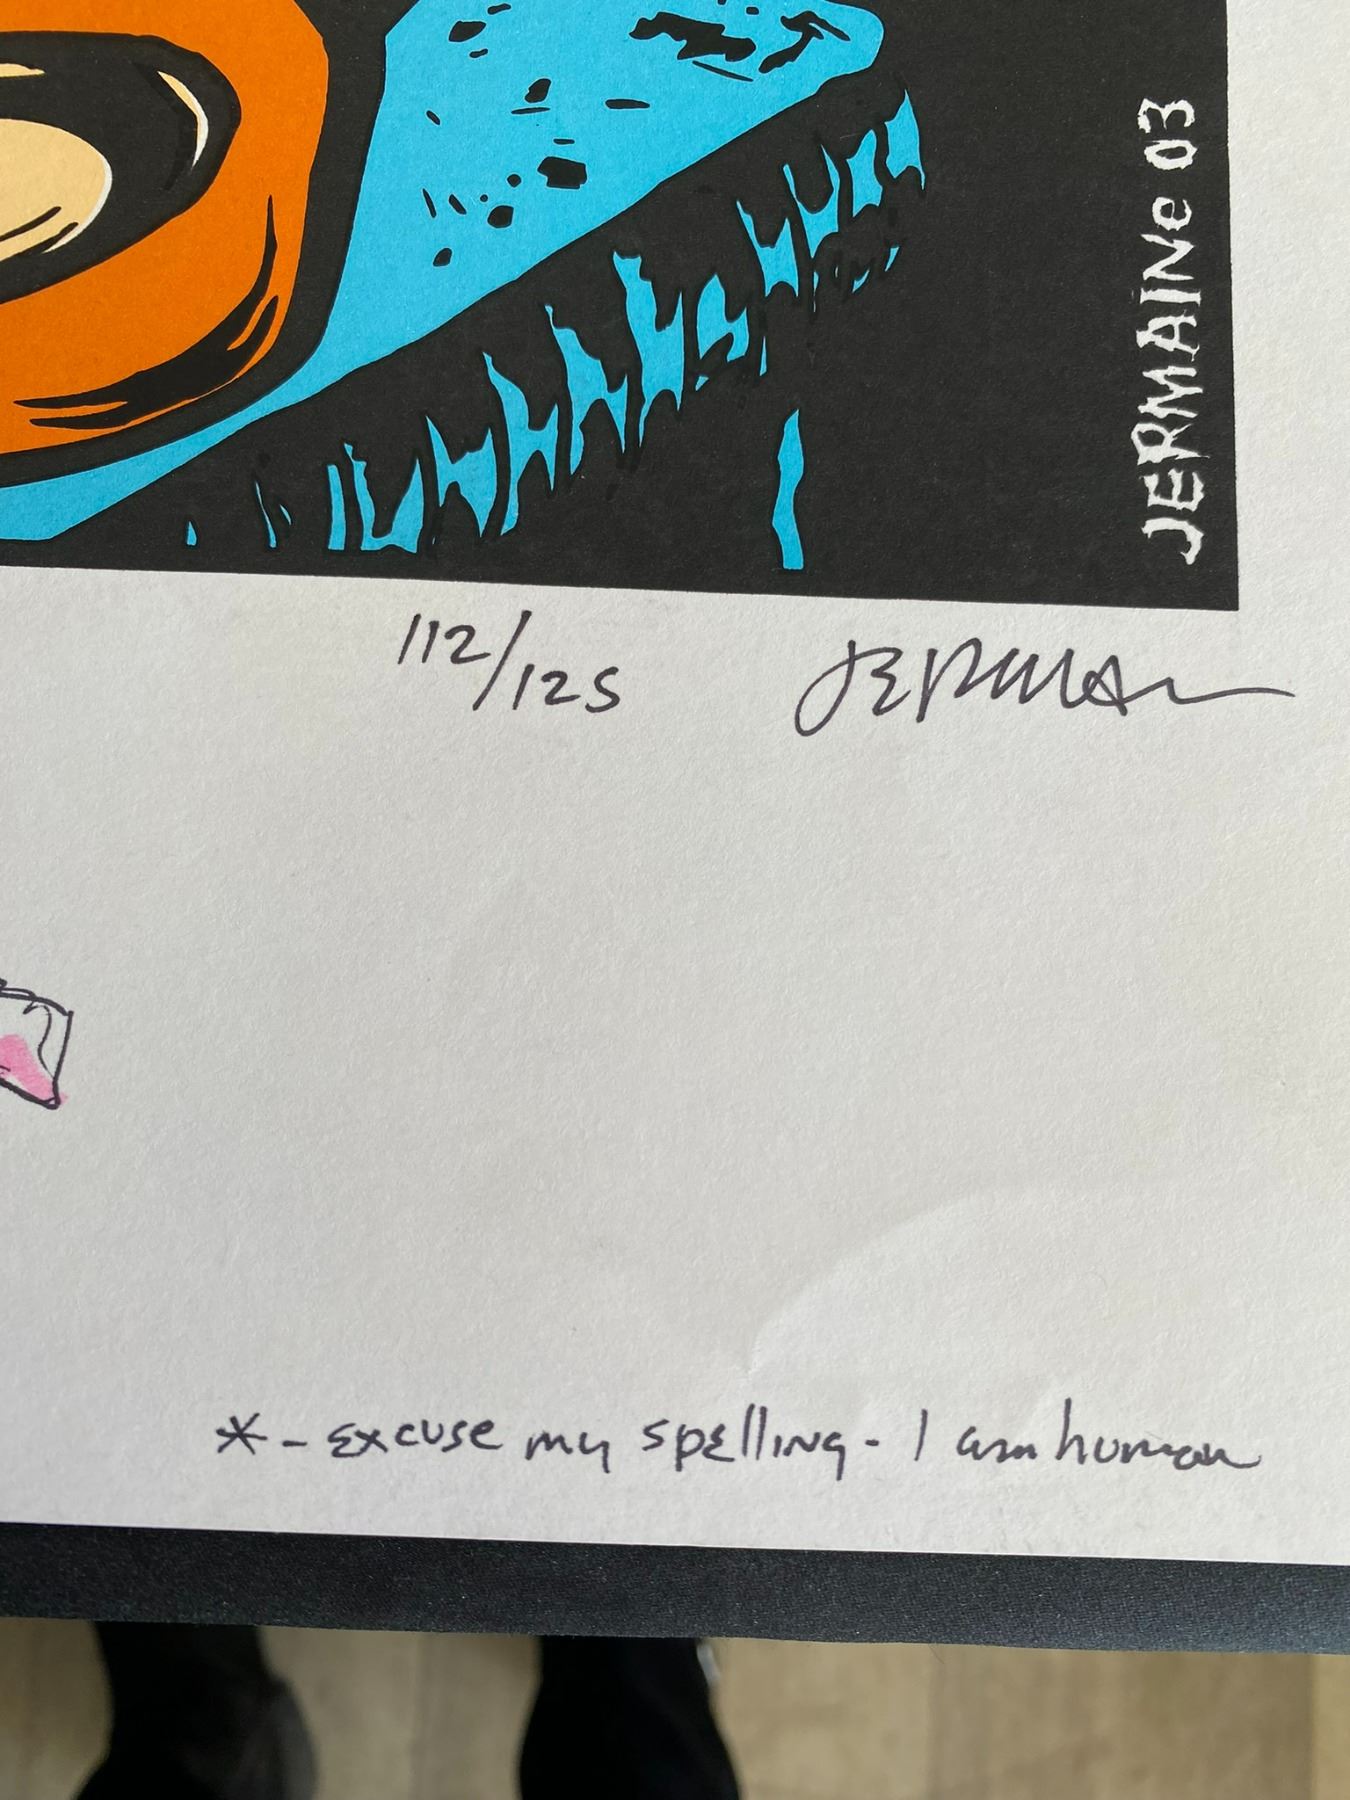 JERMAINe 03
112/125
* - excuse my spelling - I am human